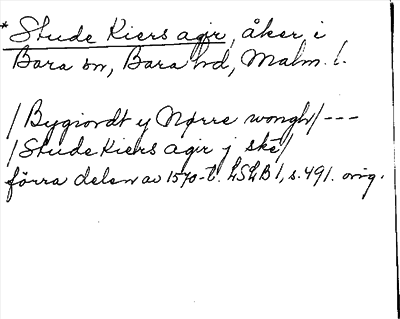 *Stude Kiers agir, åker i
Bara sn, Bara hd, Malm. l.
/Bygiordt y Nørre wongh/---
/Stude Kiers agir j ske/
förra delen av 1570-t. LSLB 1, s. 491. orig.